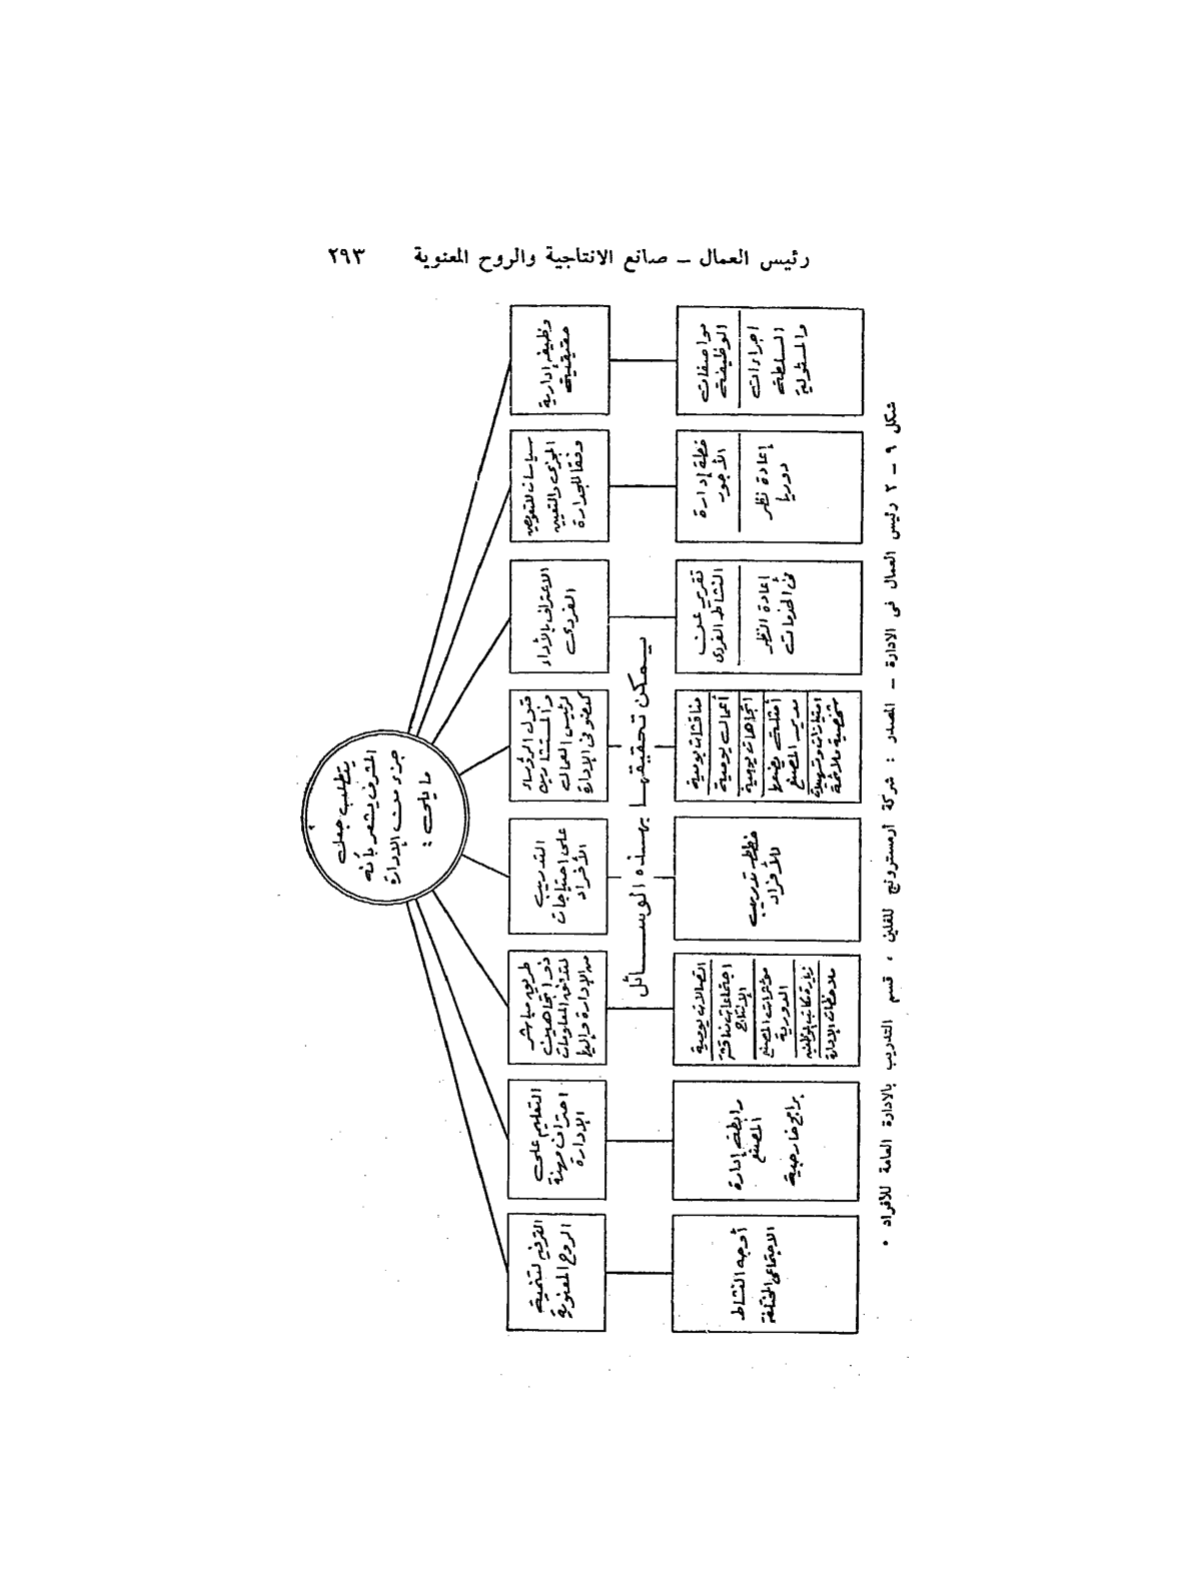 رئيس العمال – صانع الانتاجية والروح المعنوية ٢٩٣
يتطلب جعل
المشرف يشعر بأنه
جزء من الإدارة
ما يلى :
وظيفة إدارية
حقيقية
سياسات للتعويض
المجزى والتعيين
وفقا للجدارة
الاعتراف بالأداء
الفردى
قبول الرؤساء
والمستشارين
لرئيس العمال
كعضو فى الإدارة
التدريب
على احتياجات
الأفراد
طريق مباشر
ذو اتجاهين
لتدفق المعلومات
من الإدارة وإليها
التعليم على
احتراف مهنة
الإدارة
الترفيه لتنمية
الروح المعنوية
يـمكن تحقيقهـا بهـذه الوسـائل
مواصفات
الوظيفة
اجراءات
السلطة
والمسئولية
خطة إدارة
الأجور
إعادة نظر
دوريا
تقرير عن
النشاط الفردى
إعادة النظر
فى الخدمات
مناقشات يومية
أعمال يومية
اتجاهات يومية
مدير المصنع
امتيازات وتسهيلات
شخصية ملائمة
خطط تدريب
للأفراد
اتصالات يومية
اجتماعات مناقشة
الإنتاج
مؤتمرات المصنع
الدورية
ملاحظات الإدارة
رابطة إدارة
المصنع
برامج خارجية
أوجه النشاط
الاجتماعى المختلفة
شكل ٩ – ٢ رئيس العمال فى الادارة – المصدر : شركة أرمسترونج للفلين ، قسم التدريب بالادارة العامة للأفراد .